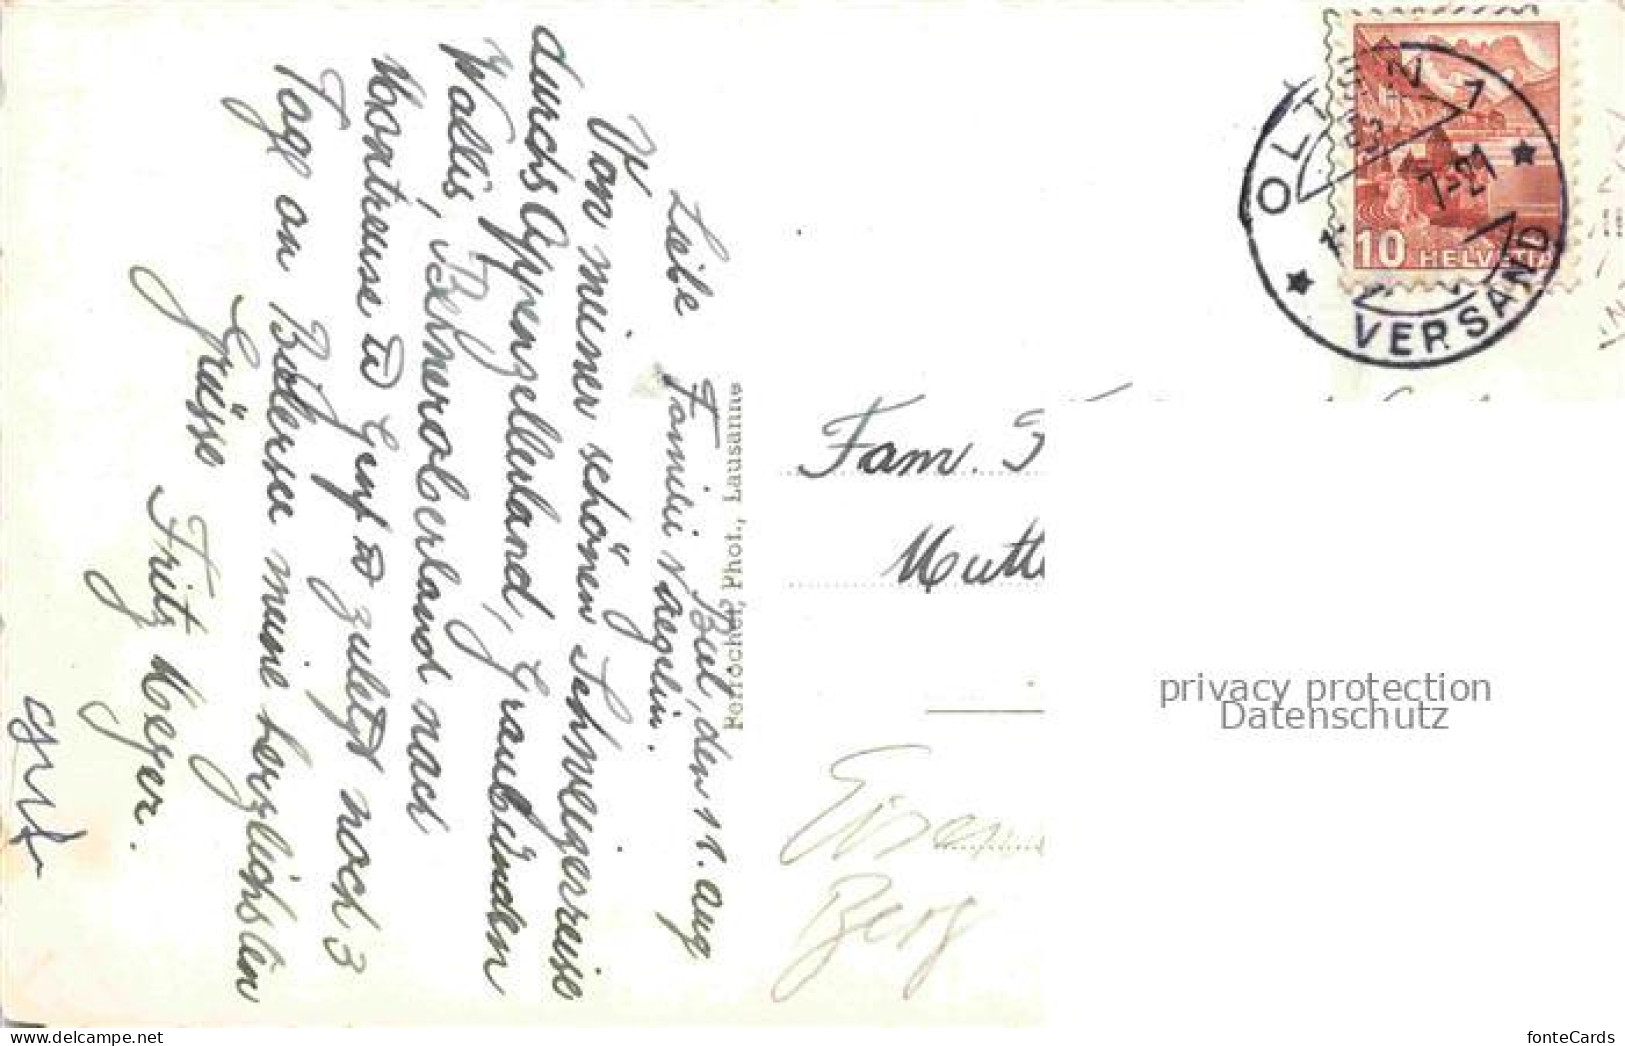 Biel, den 11. Aug
Liebe Familie Naegelin.
Von meiner schönen Schweizerreise
durchs Appenzellerland, Graubünden
Wallis, Berneroberland nach
Montreuse u Genf u zuletzt noch 3
Tage am Bielersee meine herzlichsten
Grüsse Fritz Meyer.
Perrochet, Phot., Lausanne
OLTEN 1
7-21
VERSAND
10 HELVETIA
Fam.
Berg
privacy protection
Datenschutz
fonteCards